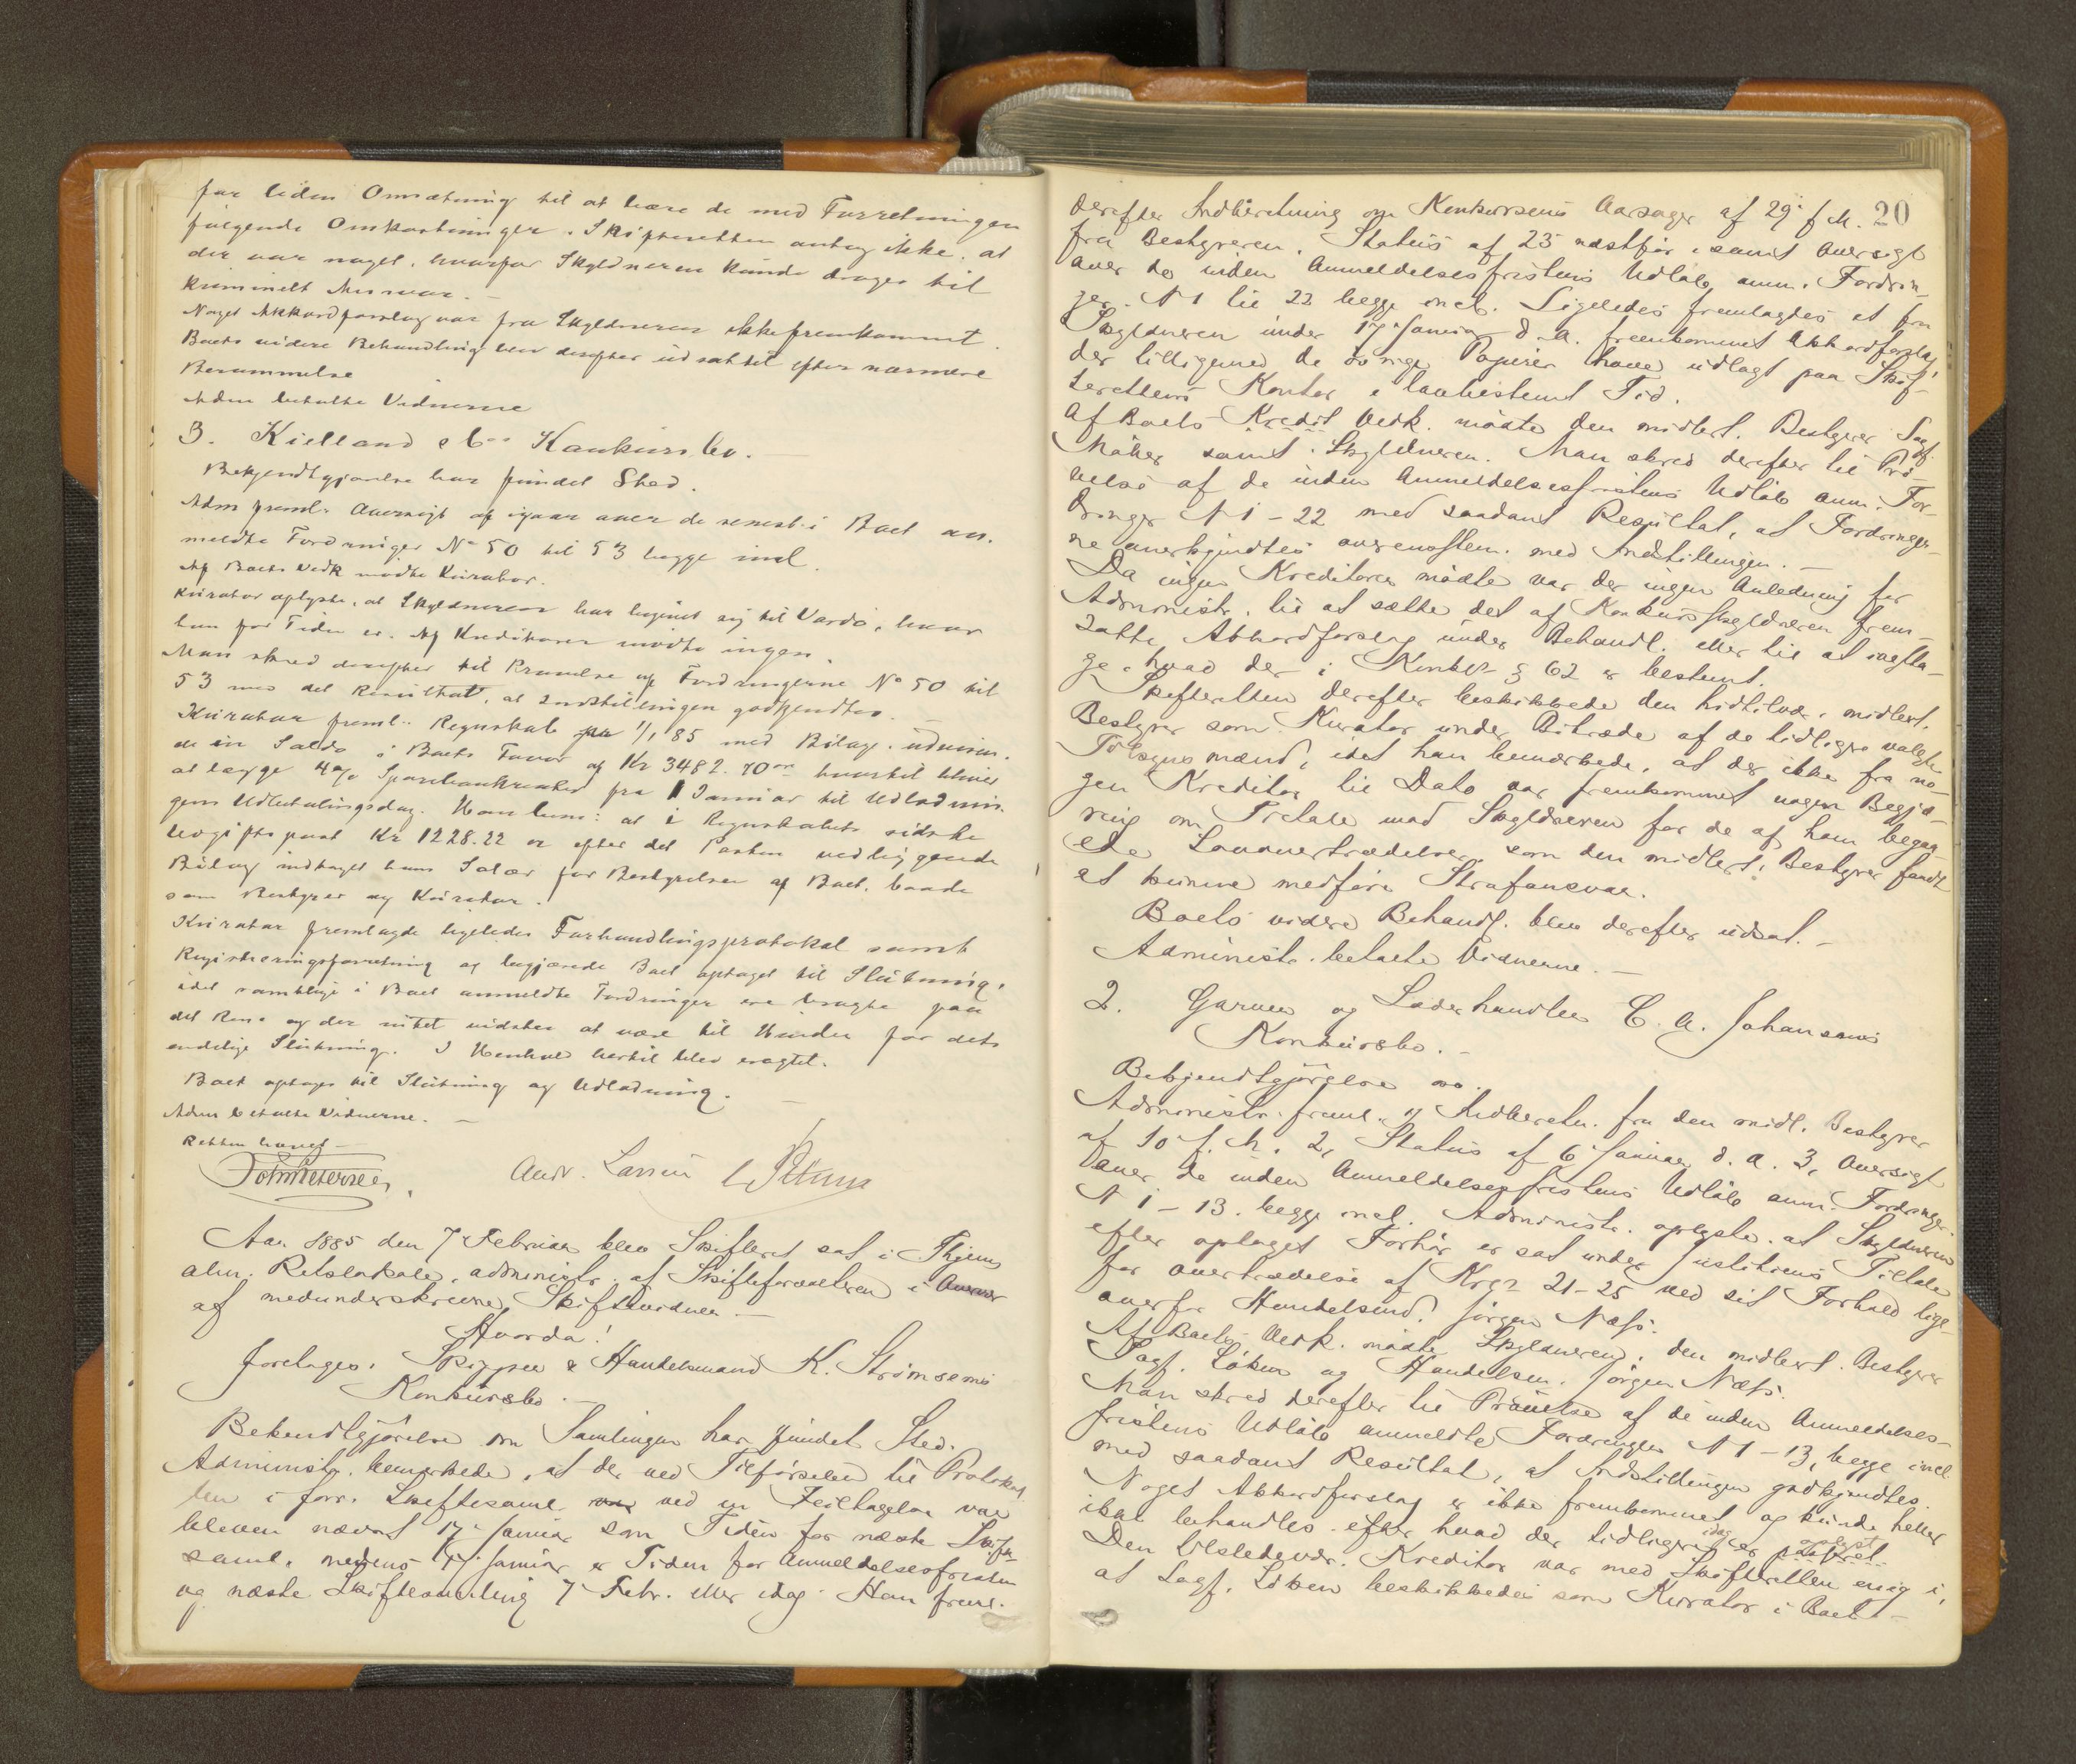 for liden Omsætning til at bære de med Forretningen
følgende Omkostninger. Skifteretten antog ikke, at
der var noget, hvorfor Skyldneren kunde drages til
kriminelt Ansvar.
Noget Akkordforslag var fra Skyldneren ikke fremkommet.
Boets videre Behandling blev derefter udsat til efter nærmere
Berammelse
Adm betalte Vidnerne
3. Kielland & Co Konkursbo.
Bekjendtgjørelse har fundet Sted.
Adm freml. Oversigt af igaar over de senest i Boet an-
meldte Fordringer No 50 til 53 begge incl.
Af Boets Vedk mødte Kurator.
Kurator oplyste, at Skyldneren har begivet sig til Vardö, hvor
han for Tiden er. Af Kreditorer mødte ingen.
Man skred derefter til Prøvelse af Fordringerne No 50 til
53 med det Resultat, at Indstillingen godkjendtes.
Kurator freml. Regnskab pr 1/1 85 med Bilage. udvisen-
de en Saldo i Boets Favør af Kr 3482.70 hvortil bliver
at lægge 4% Sparebankrenter fra 1 Januar til Udlodnin-
gens Udbetalingsdag. Han bem: at i Regnskabets sidste
Udgiftspost Kr 1228.22 er efter det Posten vedliggende
Bilag indtaget hans Salær for Bestyrelsen af Boet, baade
som Bestyrer og Kurator.
Kurator fremlagde ligeledes Forhandlingsprotokol samt
Registreringsforretning og begjærede Boet optaget til Slutning,
idet samtlige i Boet anmeldte Fordringer ere bragte paa
det Rene og der intet vidstes at være til Hinder for dets
endelige Slutning. I Henhold hertil blev eragtet.
Boet optages til Slutning og Udlodning.
Adm betalte Vidnerne.
Retten hævet
Andr. Larsen
Aar 1885 den 7 Februar blev Skifteret sat i Thjems
alm. Retslokale, administr. af Skifteforvalteren i Overvær
af medunderskrevne Skiftevidner.
Hvorda!
foretages. Skipper & Handelsmand K. Strömsens
Konkursbo.
Bekendtgjörelse om Samlingen har fundet Sted.
Administr. bemærkede, at der ved Tilförselen til Protokol-
len i forr. Skiftesaml var ved en Feiltagelse var
bleven nævnt 17 Januar som Tiden for næste Skifte-
saml. medens 17 Januar er Tiden for Anmeldelsesfristen
og næste Skiftesamling 7 Febr. eller idag. Han freml.
20
derefter Indberetning om Konkursens Aarsager af 29 f M.
fra Bestyreren. Status af 23 næstfør, samt Oversigt
over de inden Anmeldelsesfristens Udlöb anm. Fordrin-
ger. N 1 til 22 begge incl. Ligeledes fremlagdes et fra
Skyldneren under 17 Januar d. A. fremkommet Akkordforslag
der tilligemed de övrige Papirer have udlagt paa Skif-
terettens Kontor i lovbestemt Tid.
Af Boets Kredit Vedk. mödte den midlert. Bestyrer Sagf.
samt Skyldneren. Man skred derefter til Prö-
velse af de inden Anmeldelsesfristens Udlöb anm. For-
dringer N 1 - 22 med saadant Resultat, at Fordringer-
ne anerkjendtes overensstem. med Indstillingen.
Da ingen Kreditorer mödte var der ingen Anledning for
Administr. til at sætte det af Konkursskyldneren frem-
satte Akkordforslag under Behandl. eller til at iagtta-
ge hvad der i Konkl § 62 er bestemt.
Skifteretten derefter beskikkede den hidtilvær. midlert.
Bestyrer som Kurator under Bitræde af de tidligere valgte
Tilsynsmænd, idet han bemærkede, at der ikke fra no-
gen Kreditor til Dato var fremkommet nogen Begjæ-
ring om Tiltale mod Skyldneren for de af ham begaa-
ede Lovovertrædelser, som den midlert. Bestyrer fandt
at kunne medföre Strafansvar.
Boets videre Behandl. blev derefter udsat.
Administr. betalte Vidnerne.
2. Garver og Læderhandler C. A. Johansens
Konkursbo.
Bekjendtgjörelse
Administr. freml. 1, Indberetn. fra den midl. Bestyrer
af 10 f. M. 2, Status af 6 Januar d. A. 3, Oversigt
over de inden Anmeldelsesfristens Udlöb anm. Fordringer
N 1 - 13. begge incl. Administr. oplyste. at Skyldneren
efter optaget Forhör er sat under Justitiens Tiltale
for overtrædelse af Krl 21-25 ved sit Forhold lige-
overfor Handelsmd. Jörgen Næss.
Af Boets Vedk. mödte Skyldneren, den midlert. Bestyrer
Sagf. Löken og Handelsm. Jörgen Næss.
Man skred derefter til Prövelse af de inden Anmeldelses-
fristens Udlöb anmeldte Fordringer N 1 - 13, begge incl.
med saadant Resultat, at Indstillingen godkjendtes.
Noget Akkordforslag er ikke fremkommet og kunde heller
ikke behandles efter hvad der tidligere idag er oplyst
Den tilstedevær. Kreditor var med Skifteretten enig i,
at Sagf. Löken beskikkedes som Kurator i Boet